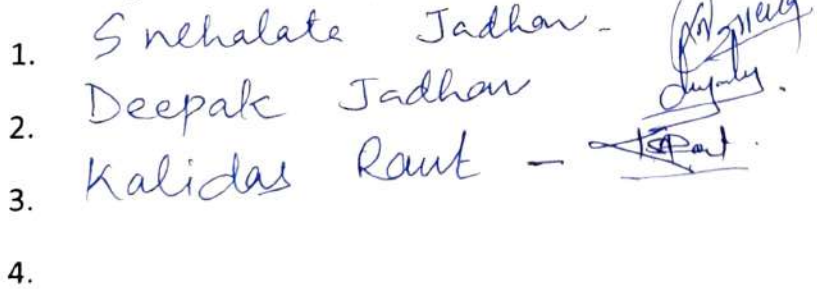 1. Snehalata Jadhav -
2. Deepak Jadhav
3. Kalidas Raut -
4.